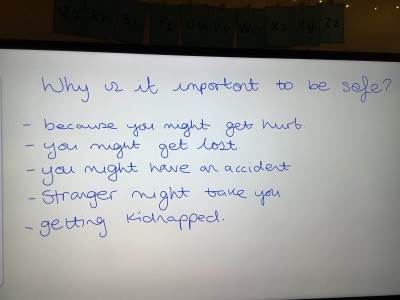 Qq Rr Ss Tt Uu Vv Ww Xx Yy Zz
Why is it important to be safe?
- because you might get hurt
- you might get lost.
- you might have an accident
- Stranger might take you
- getting kidnapped.